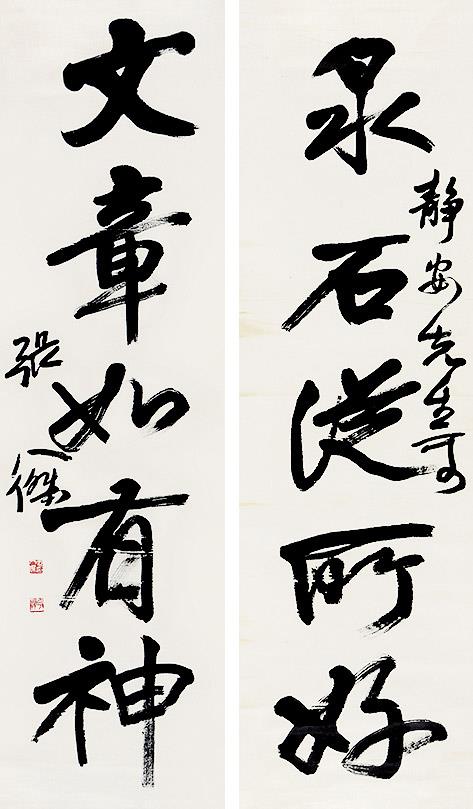 泉石從所好
靜安先生可
文章如有神
張人傑